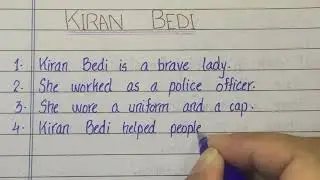 KIRAN BEDI
1. Kiran Bedi is a brave lady.
2. She worked as a police officer.
3. She wore a uniform and a cap.
4. Kiran Bedi helped people